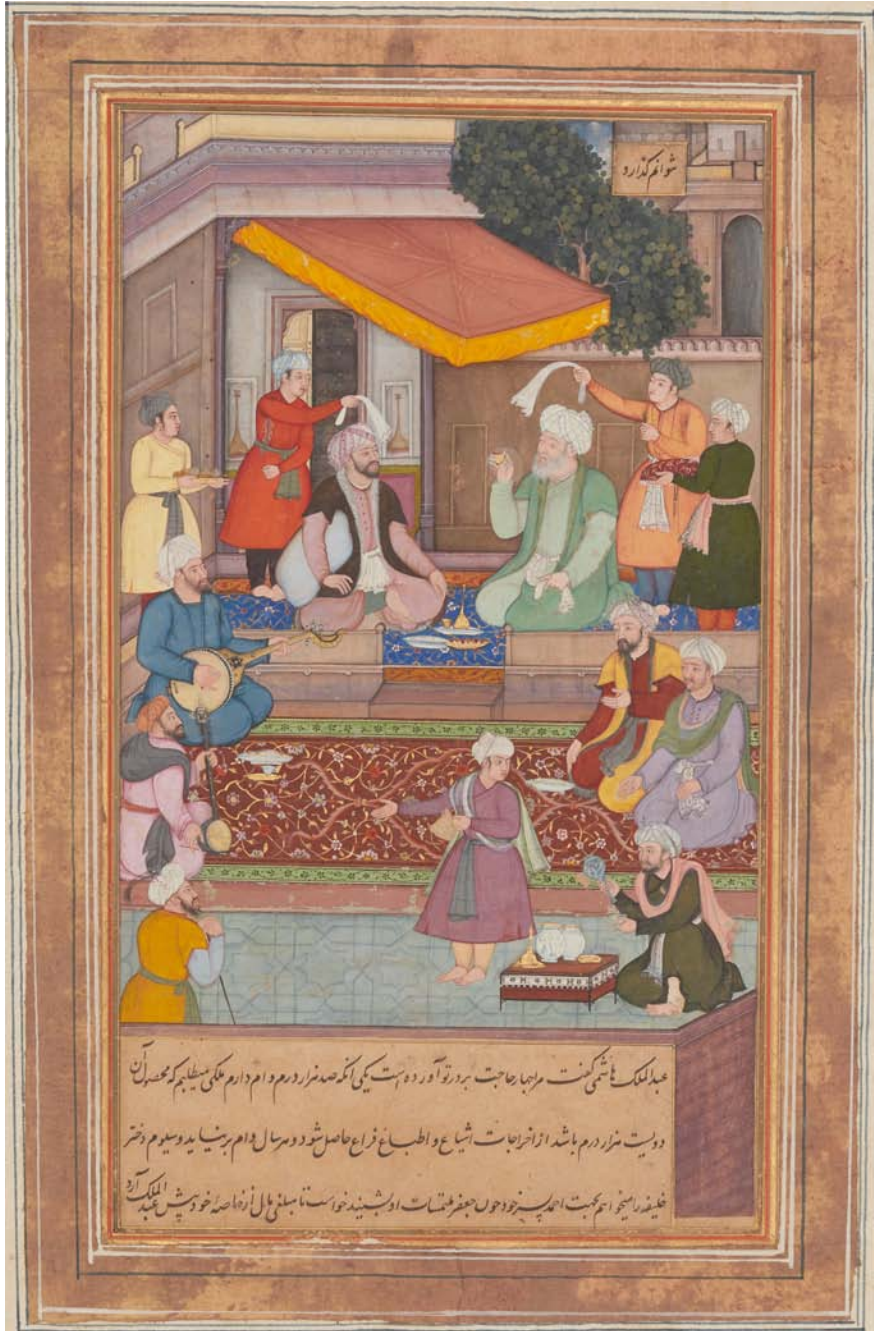 شوانم گذارد
عبدالملک هاشمی گفت مرا چهار حاجت بر در تو آورده است یکی آنکه صد هزار درم وام دارم ملکی میطلبم که محصول آن
دویست هزار درم باشد از اخراجات اشیاع و اطباع فراغ حاصل شود و هر سال وام برنیاید و سیوم دختر
خلیفه را میخواهم بجهت احمد پسر خود چون جعفر ملتمسات او بشنید خواست تا مبلغی مال از خاصهٔ خود پیش عبدالملک آرد